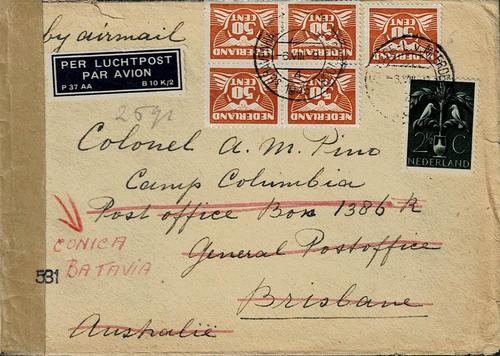 by airmail
PER LUCHTPOST
PAR AVION
P 37 AA B 10 K/2
50 CENT NEDERLAND
50 CENT NEDERLAND
50 CENT NEDERLAND
50 CENT NEDERLAND
50 CENT NEDERLAND
2½ C
NEDERLAND
Colonel A. M. Pino
Camp Columbia
Post office Box 1386 R
General Postoffice
Brisbane
Australië
CONICA
BATAVIA
531